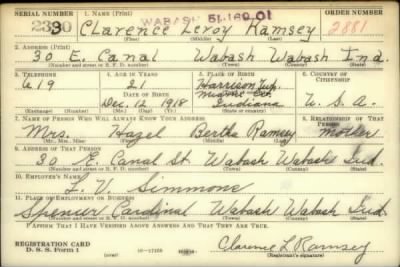 SERIAL NUMBER 1. NAME (Print) ORDER NUMBER
WABASH 51.169.01
2330 Clarence Leroy Ramsey 2881
(First) (Middle) (Last)
2. ADDRESS (Print)
30 E. Canal Wabash Wabash Ind.
(Number and street or R. F. D. number) (Town) (County) (State)
3. TELEPHONE 4. AGE IN YEARS 5. PLACE OF BIRTH 6. COUNTRY OF CITIZENSHIP
619 21 Harrison Twp.
DATE OF BIRTH
Dec. 12 1918 Indiana U. S. A.
(Exchange) (Number) (Mo.) (Day) (Yr.) (State or country)
7. NAME OF PERSON WHO WILL ALWAYS KNOW YOUR ADDRESS 8. RELATIONSHIP OF THAT PERSON
Mrs. Hazel Bertha Ramsey Mother
(Mr., Mrs., Miss) (First) (Middle) (Last)
9. ADDRESS OF THAT PERSON
30 E. Canal St. Wabash Wabash Ind.
(Number and street or R. F. D. number) (Town) (County) (State)
10. EMPLOYER'S NAME
L. V. Simmons
11. PLACE OF EMPLOYMENT OR BUSINESS
Spencer Cardinal Wabash Wabash Ind.
(Number and street or R. F. D. number) (Town) (County) (State)
I AFFIRM THAT I HAVE VERIFIED ABOVE ANSWERS AND THAT THEY ARE TRUE.
REGISTRATION CARD
D. S. S. Form 1 Clarence L Ramsey
(Registrant's signature)